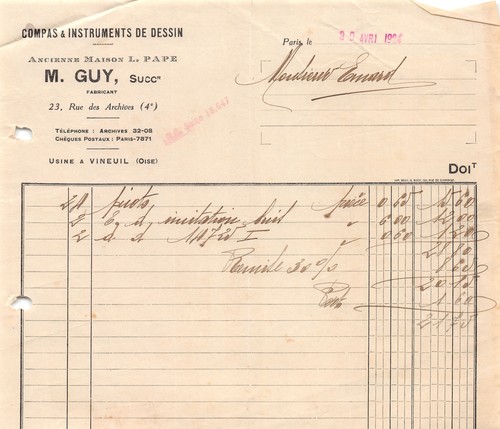 COMPAS & INSTRUMENTS DE DESSIN
ANCIENNE MAISON L. PAPE
M. GUY, SUCCR
FABRICANT
23, Rue des Archives (4e)
TÉLÉPHONE : ARCHIVES 32-08
CHÈQUES POSTAUX : PARIS-7871
USINE À VINEUIL (OISE)
Paris, le 30 AVRI 192
Monsieur
DOIT
24 pivots pièce 0.65 15 60
2 E. d. imitation buis " 6.00 12 00
2 d. d. I " 0.60 1 20
28 80
Remise 30% 8 65
20 15
Port 1 60
21 75